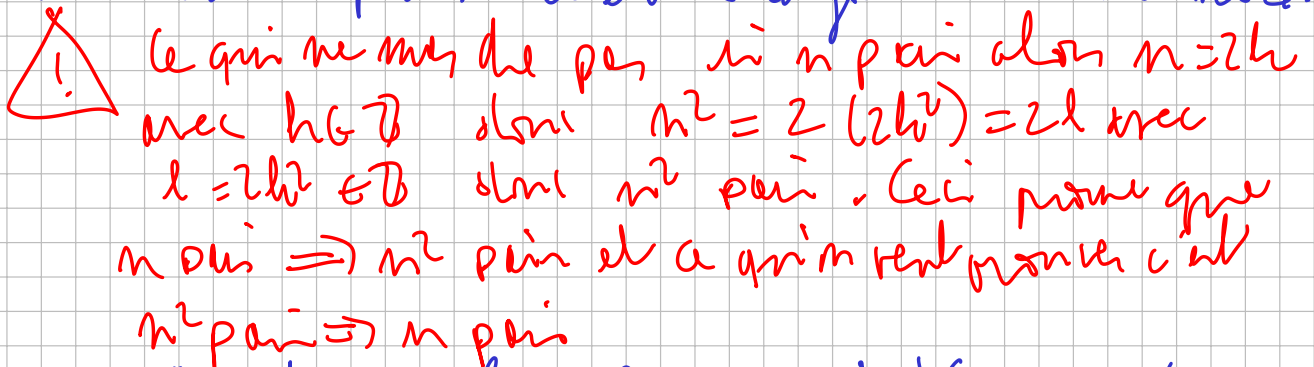 ! Ce qui ne marche pas si n pair alors n=2k
avec k∈ℤ donc n² = 2 (2k²) = 2l avec
l = 2k² ∈ ℤ donc n² pair. Ceci prouve que
n pair ⇒ n² pair et ce qu'on veut prouver c'est
n² pair ⇒ n pair